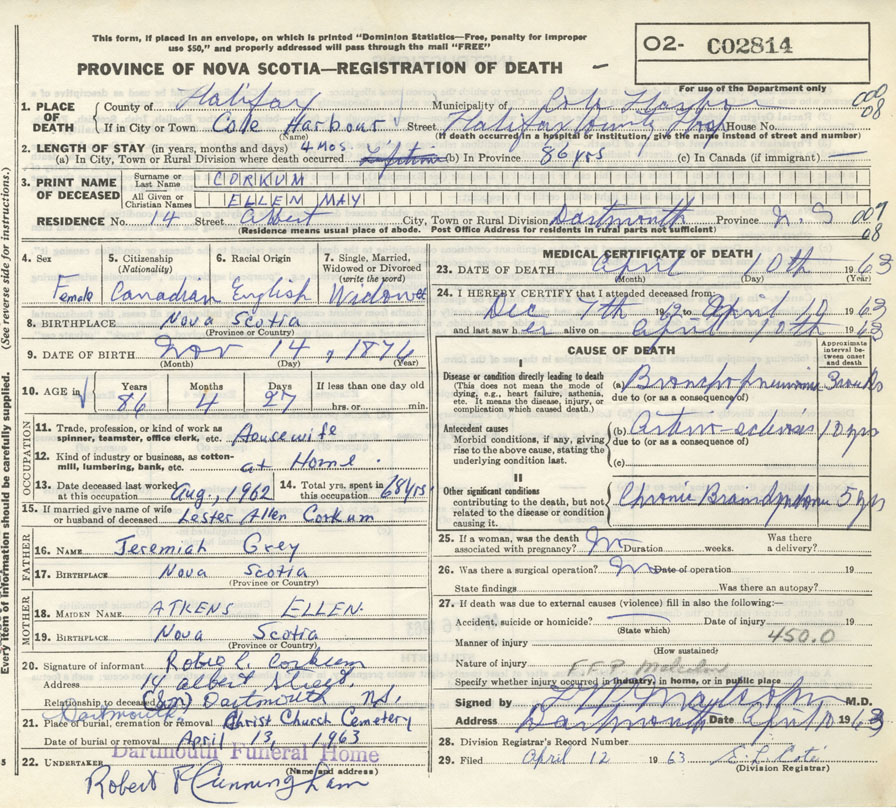 This form, if placed in an envelope, on which is printed "Dominion Statistics—Free, penalty for improper
use $50," and properly addressed will pass through the mail "FREE"
O2- C02814
PROVINCE OF NOVA SCOTIA—REGISTRATION OF DEATH
For use of the Department only
1. PLACE OF DEATH
County of Halifax Municipality of Cole Harbour
If in City or Town Cole Harbour Street Halifax County Hosp House No.
(Name) (If death occurred in a hospital or institution, give the name instead of street and number)
2. LENGTH OF STAY (in years, months and days) 4 mos.
(a) In City, Town or Rural Division where death occurred (b) In Province 86 yrs (c) In Canada (if immigrant) —
3. PRINT NAME OF DECEASED
Surname or Last Name CORKUM
All Given or Christian Names ELLEN MAY
RESIDENCE No. 14 Street Albert City, Town or Rural Division Dartmouth Province N.S
(Residence means usual place of abode. Post Office Address for residents in rural parts not sufficient)
4. Sex Female
5. Citizenship (Nationality) Canadian
6. Racial Origin English
7. Single, Married, Widowed or Divorced (write the word) Widowed
8. BIRTHPLACE Nova Scotia
(Province or Country)
9. DATE OF BIRTH Nov 14, 1876
(Month) (Day) (Year)
10. AGE in Years 86 Months 4 Days 27 If less than one day old hrs. or min.
OCCUPATION
11. Trade, profession, or kind of work as spinner, teamster, office clerk, etc. Housewife
12. Kind of industry or business, as cotton-mill, lumbering, bank, etc. at Home.
13. Date deceased last worked at this occupation Aug., 1962
14. Total yrs. spent in this occupation 68 yrs.
15. If married give name of wife or husband of deceased Lester Allen Corkum
FATHER
16. NAME Jeremiah Grey
17. BIRTHPLACE Nova Scotia
(Province or Country)
MOTHER
18. MAIDEN NAME ATKENS ELLEN
19. BIRTHPLACE Nova Scotia
(Province or Country)
20. Signature of informant Robie L. Corkum
Address 14 Albert Street
Relationship to deceased (Son) Dartmouth N.S.
Dartmouth
21. Place of burial, cremation or removal Christ Church Cemetery
Date of burial or removal April 13, 1963
Dartmouth Funeral Home
22. UNDERTAKER
(Name and address)
Robert F Cunningham
MEDICAL CERTIFICATE OF DEATH
23. DATE OF DEATH April 10th 1963
(Month) (Day) (Year)
24. I HEREBY CERTIFY that I attended deceased from:
Dec 7th 1962 to April 10 1963
and last saw h er alive on April 10th 1963
CAUSE OF DEATH
Approximate interval between onset and death
I
Disease or condition directly leading to death
(This does not mean the mode of dying, e.g., heart failure, asthenia, etc. It means the disease, injury, or complication which caused death.)
(a) Bronchopneumonia 3 weeks
due to (or as a consequence of)
Antecedent causes
Morbid conditions, if any, giving rise to the above cause, stating the underlying condition last.
(b) Arterio-sclerosis 10 yrs
due to (or as a consequence of)
(c)
II
Other significant conditions
contributing to the death, but not related to the disease or condition causing it.
Chronic Brain Syndrome 5 yrs
25. If a woman, was the death associated with pregnancy? No Duration weeks. Was there a delivery?
26. Was there a surgical operation? No Date of operation 19
State findings Was there an autopsy?
27. If death was due to external causes (violence) fill in also the following:—
Accident, suicide or homicide? Date of injury 19
(State which)
450.0
Manner of injury
(How sustained)
Nature of injury
F.F.P. Malcolm
Specify whether injury occurred in industry, in home, or in public place
Signed by M.D.
Address Dartmouth Date April 10 1963
28. Division Registrar's Record Number
29. Filed April 12 1963 E L Coté
(Division Registrar)
Every item of information should be carefully supplied. (See reverse side for instructions.)